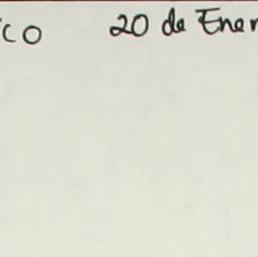 co 20 de Ener